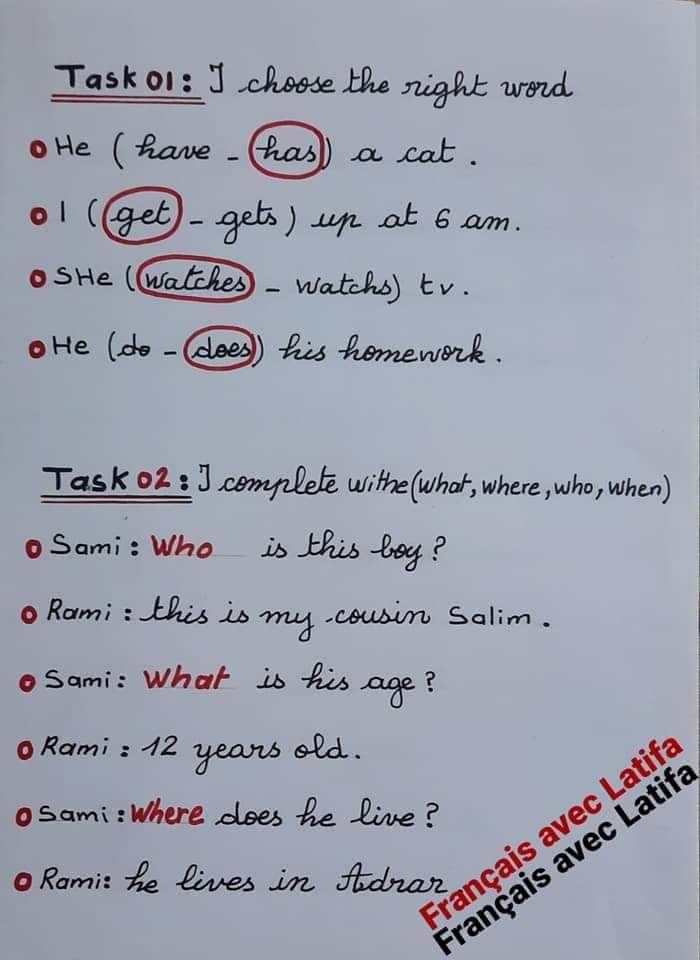 Task 01: I choose the right word
He (have - has) a cat.
I (get - gets) up at 6 am.
SHe (watches - watchs) tv.
He (do - does) his homework.
Task 02: I complete withe (what, where, who, when)
Sami: Who is this boy?
Rami: this is my cousin Salim.
Sami: What is his age?
Rami: 12 years old.
Sami: Where does he live?
Rami: he lives in Adrar
Français avec Latifa
Français avec Latifa